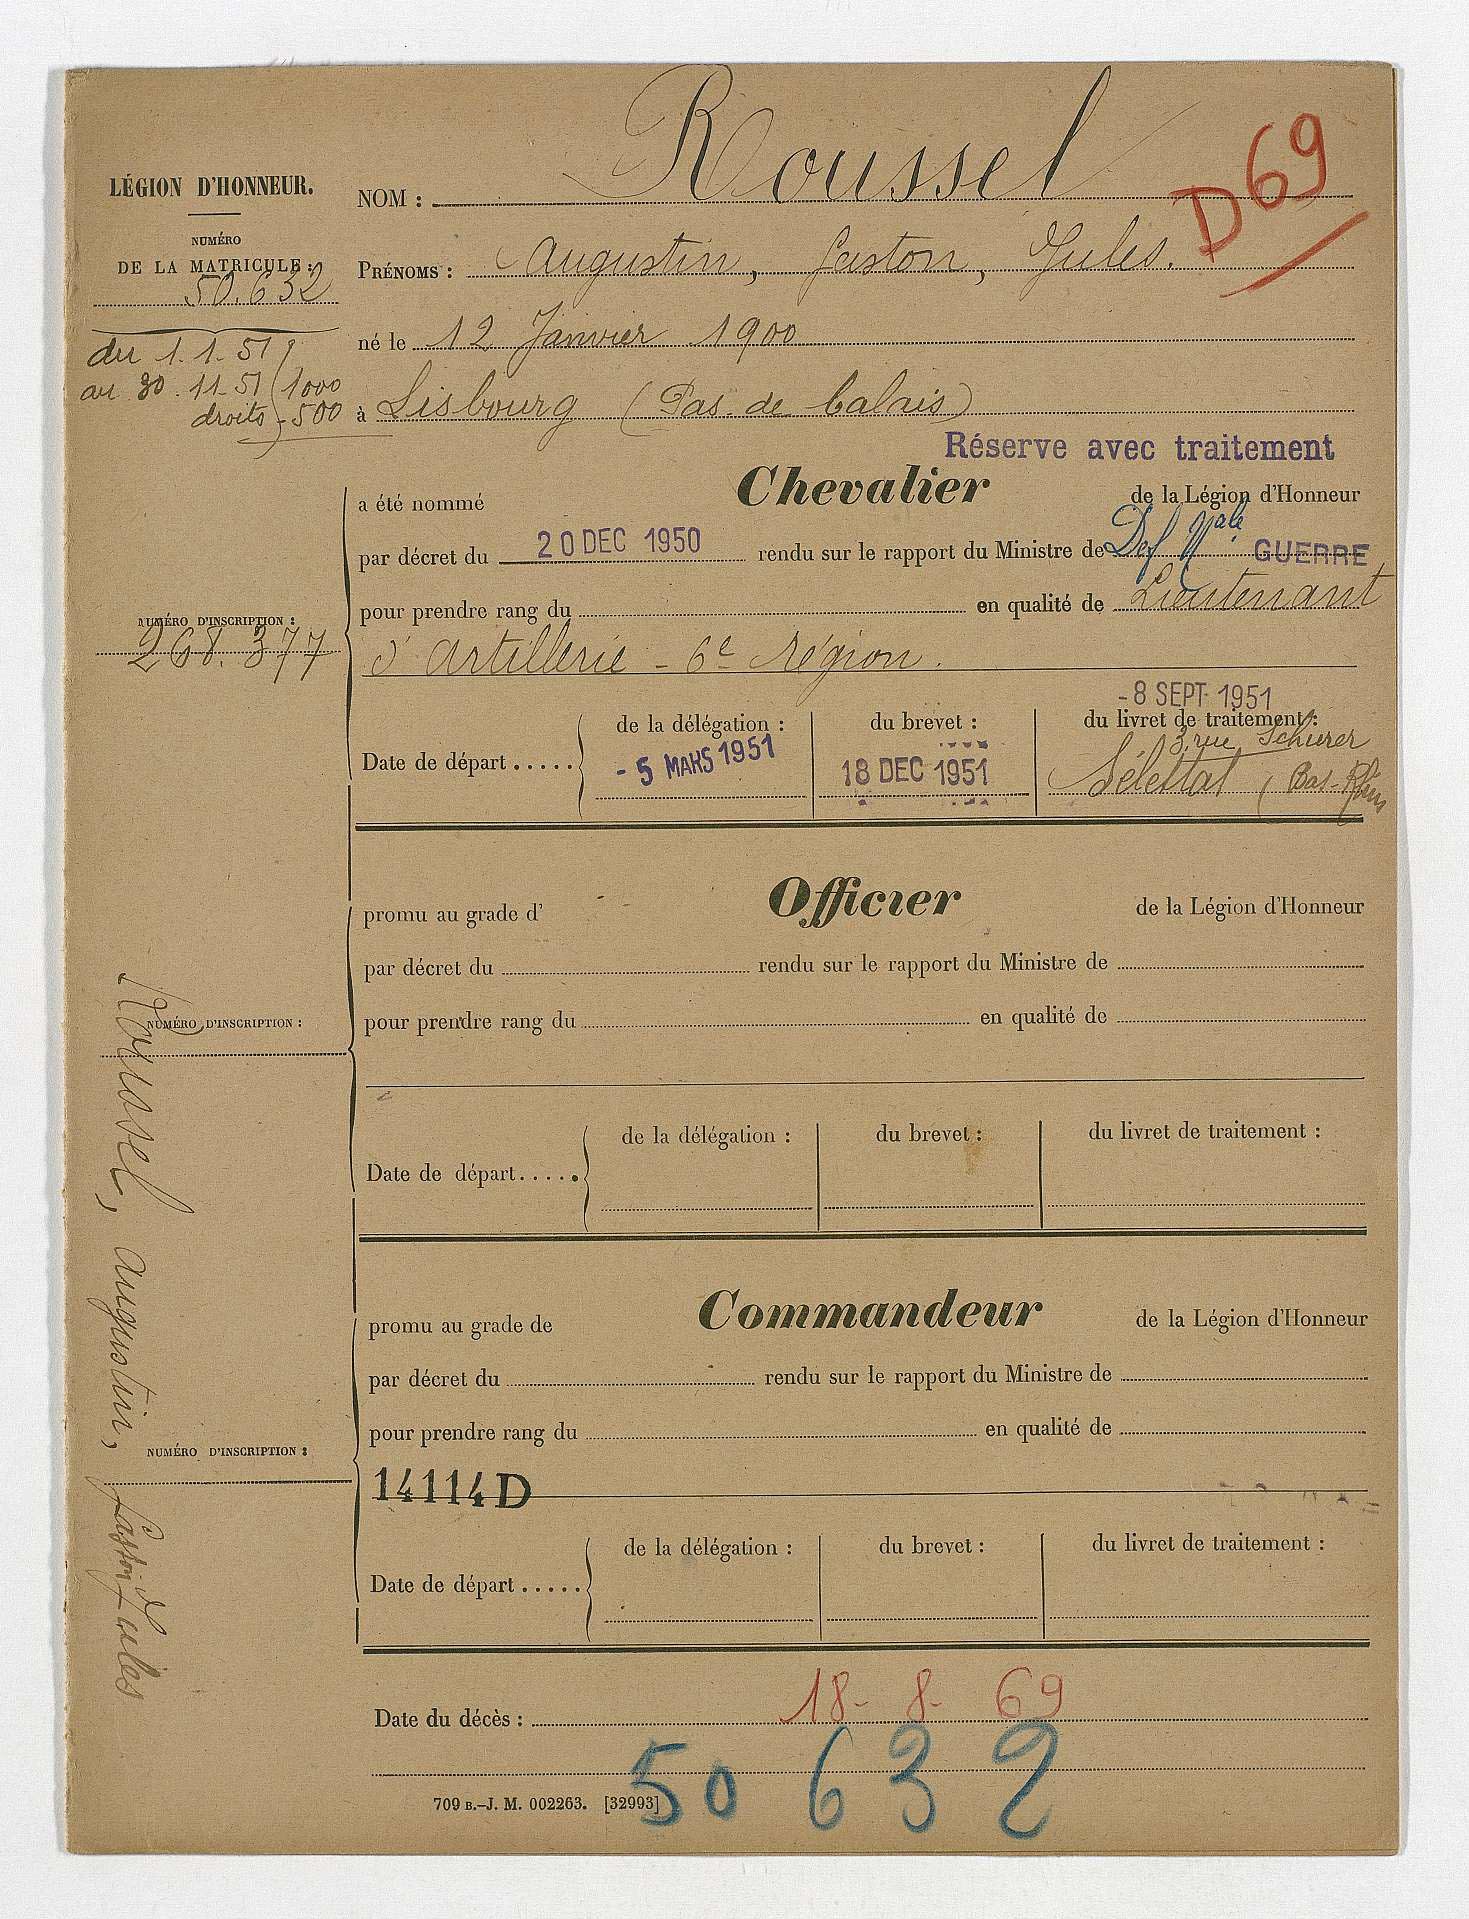 LÉGION D'HONNEUR.
NUMÉRO
DE LA MATRICULE :
50.632
du 1.1.51
au 30.11.51 1000
droits - 500
NOM : Roussel
D69
PRÉNOMS : Augustin, Gaston, Jules.
né le 12 Janvier 1900
à Lisbourg (Pas-de-Calais)
Réserve avec traitement
a été nommé Chevalier de la Légion d'Honneur
par décret du 20 DEC 1950 rendu sur le rapport du Ministre de Def Nale GUERRE
pour prendre rang du en qualité de Lieutenant
d'Artillerie - 6e région.
NUMÉRO D'INSCRIPTION :
268.377
-8 SEPT 1951
de la délégation : du brevet : du livret de traitement :
Date de départ ..... - 5 MARS 1951 18 DEC 1951 3, rue Schurer
Sélestat (Bas-Rhin
promu au grade d' Officier de la Légion d'Honneur
par décret du rendu sur le rapport du Ministre de
pour prendre rang du en qualité de
NUMÉRO D'INSCRIPTION :
de la délégation : du brevet : du livret de traitement :
Date de départ.....
promu au grade de Commandeur de la Légion d'Honneur
par décret du rendu sur le rapport du Ministre de
pour prendre rang du en qualité de
NUMÉRO D'INSCRIPTION :
14114D
de la délégation : du brevet : du livret de traitement :
Date de départ .....
Roussel, Augustin, Gaston, Jules
Date du décès : 18-8-69
50632
709 B.-J. M. 002263. [32993]